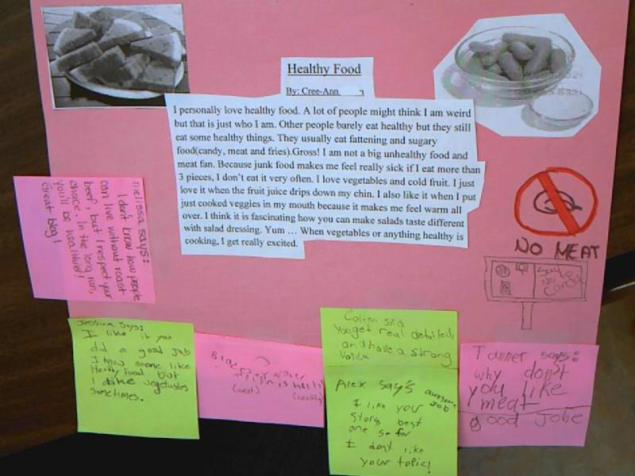 Healthy Food
By: Cree-Ann
I personally love healthy food. A lot of people might think I am weird
but that is just who I am. Other people barely eat healthy but they still
eat some healthy things. They usually eat fattening and sugary
food(candy, meat and fries).Gross! I am not a big unhealthy food and
meat fan. Because junk food makes me feel really sick if I eat more than
3 pieces, I don't eat it very often. I love vegetables and cold fruit. I just
love it when the fruit juice drips down my chin. I also like it when I put
just cooked veggies in my mouth because it makes me feel warm all
over. I think it is fascinating how you can make salads taste different
with salad dressing. Yum ... When vegetables or anything healthy is
cooking, I get really excited.
NO MEAT
says:
I don't know how people
can live without roast
beef, but I respect your
choice. In the long run,
you'll be healthier!
Great Blog
Jessica says:
I like it you
did a good job
I know some like
Healthy food but
I like vegetables
sometimes.
You get real detailed,
and have a strong
voice
Alex say's awesome
job
I like your
story best
one so far
I don't like
your topic!
Tanner says:
why don't
you like
meat
good Jobe